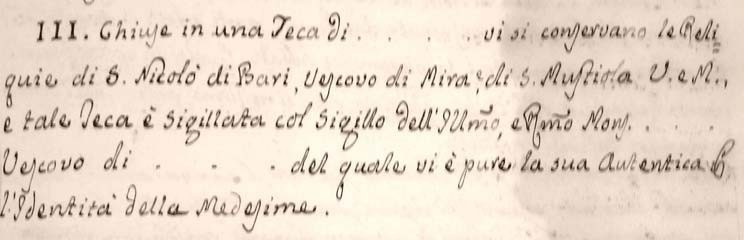 III. Chiuse in una Teca di . . . . . vi si conservano le Reli=
quie di S. Nicolò di Bari, Vescovo di Mira, e di S. Mustiola V. e M.,
e tale Teca è sigillata col Sigillo dell'Illmo, e Rmo Mons. . . .
Vescovo di . . . del quale vi è pure la sua Autentica
l'Identità della Medesime.